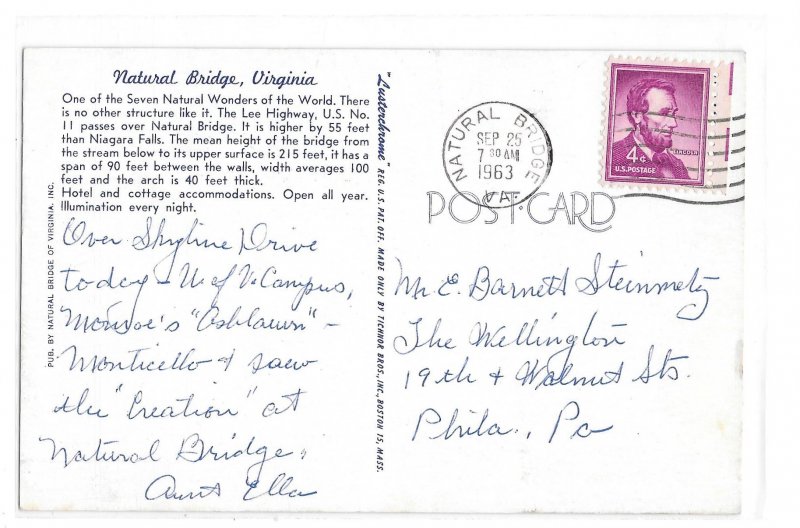 Natural Bridge, Virginia
One of the Seven Natural Wonders of the World. There
is no other structure like it. The Lee Highway, U.S. No.
11 passes over Natural Bridge. It is higher by 55 feet
than Niagara Falls. The mean height of the bridge from
the stream below to its upper surface is 215 feet, it has a
span of 90 feet between the walls, width averages 100
feet and the arch is 40 feet thick.
Hotel and cottage accommodations. Open all year.
Illumination every night.
Over Skyline Drive
today - U of V. Campus,
Monroe's "Ashlawn" -
Monticello & saw
the "Creation" at
Natural Bridge.
Aunt Ella
PUB. BY NATURAL BRIDGE OF VIRGINIA, INC.
"Lusterchrome" REG. U.S. PAT. OFF. MADE ONLY BY TICHNOR BROS., INC., BOSTON 15, MASS.
NATURAL BRIDGE
SEP 25
7 30 AM
1963
VA.
LINCOLN
4¢
U.S. POSTAGE
POST CARD
Mr. E. Barnett Steinmetz
The Wellington
19th & Walnut Sts.
Phila., Pa